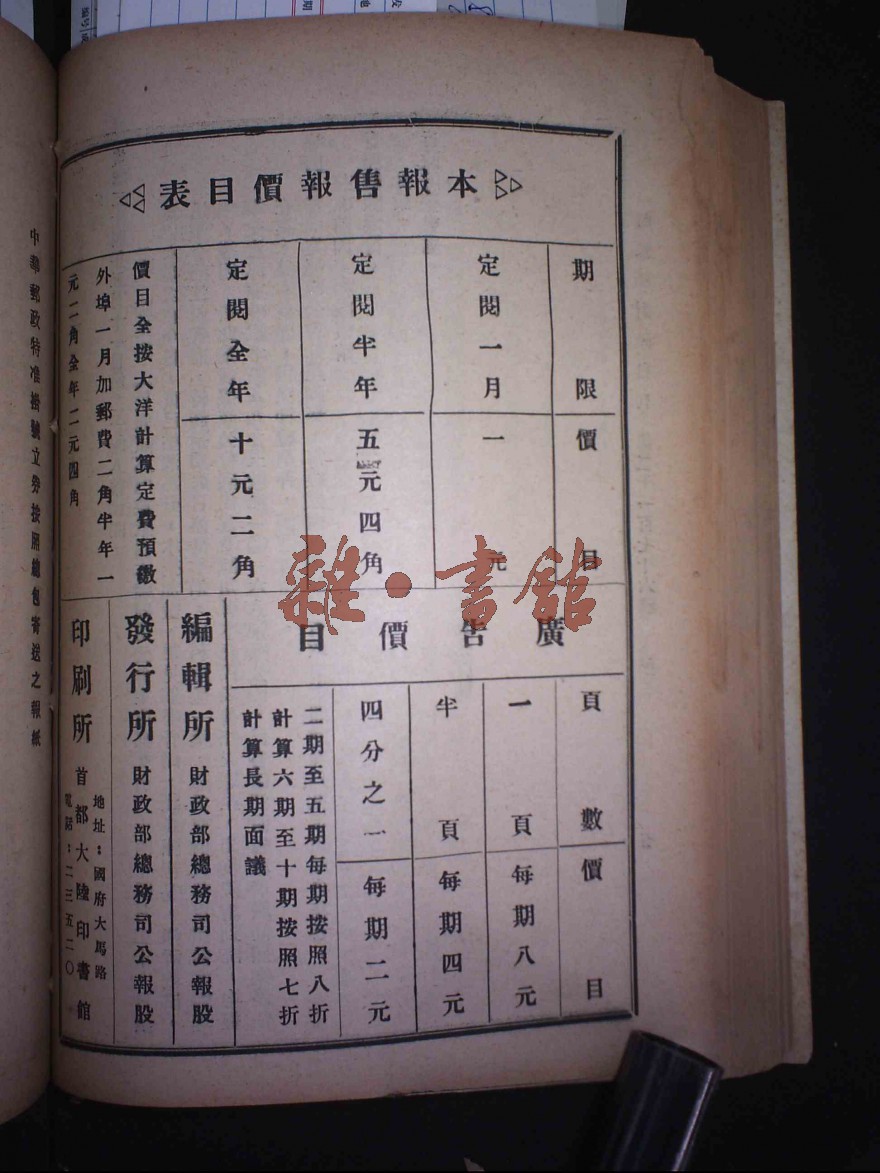 本報售報價目表
期限
價目
定閱一月
一元
定閱半年
五元四角
定閱全年
十元二角
價目全按大洋計算定費預繳
外埠一月加郵費二角半年一
元二角全年二元四角
廣告價目
頁數
價目
一頁
每期八元
半頁
每期四元
四分之一
每期二元
二期至五期每期按照八折
計算六期至十期按照七折
計算長期面議
編輯所 財政部總務司公報股
發行所 財政部總務司公報股
印刷所 首都大陸印書館
地址：國府大馬路
電話：二三五二〇
中華郵政特准掛號立券按照總包寄送之報紙
雜·書館